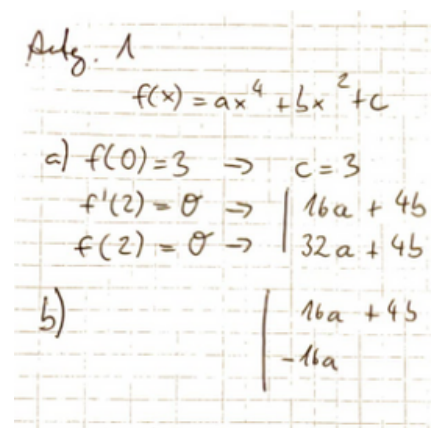 Aufg. 1
f(x) = ax⁴ + bx² + c
a) f(0) = 3 → c = 3
f'(2) = 0 → | 16a + 4b
f(2) = 0 → | 32a + 4b
b) | 16a + 4b
| -16a